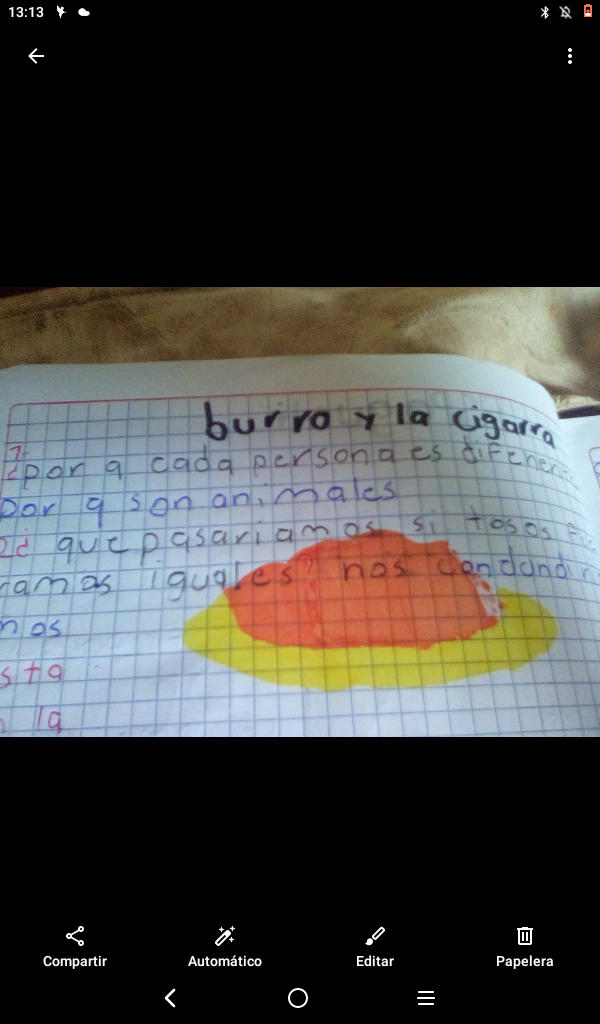 13:13
burro y la cigarra
1-
¿por q cada persona es
por q son animales
2¿ que pasariamos si tosos
ramas iguales? nos
nos
sta
la
Compartir
Automático
Editar
Papelera